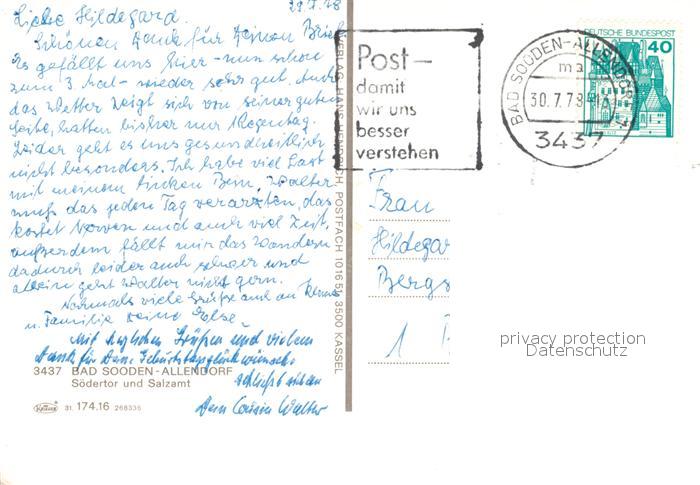 29.7.78
Liebe Hildegard.
Schönen Dank für Deinen Brief.
Es gefällt uns hier - nun schon
zum 3. Mal - wieder sehr gut. Auch
das Wetter zeigt sich von seiner guten
Seite, hatten bisher nur 1 Regentag.
Leider geht es uns gesundheitlich
nicht besonders. Ich habe viel Last
mit meinem linken Bein, Walter
muß das jeden Tag verarzten, das
kostet Nerven und auch viel Zeit,
außerdem fällt mir das Wandern
dadurch leider auch schwer und
allein geht Walter nicht gern.
Nochmals viele Grüße auch an
u. Familie Deine Else
Mit herzlichen Grüßen und vielem
Dank für Deine Geburtstagsglückwünsche
schließt sich an
Dein Cousin Walter
3437 BAD SOODEN-ALLENDORF
Södertor und Salzamt
31. 174.16 268336
VERLAG HANS HENDRICH, POSTFACH 1016 55, 3500 KASSEL
Post-
damit
wir uns
besser
verstehen
BAD SOODEN-ALLENDORF 1
ma
30.7.78
3437
DEUTSCHE BUNDESPOST
40
Frau
Hildegar
Bergs
1
privacy protection
Datenschutz